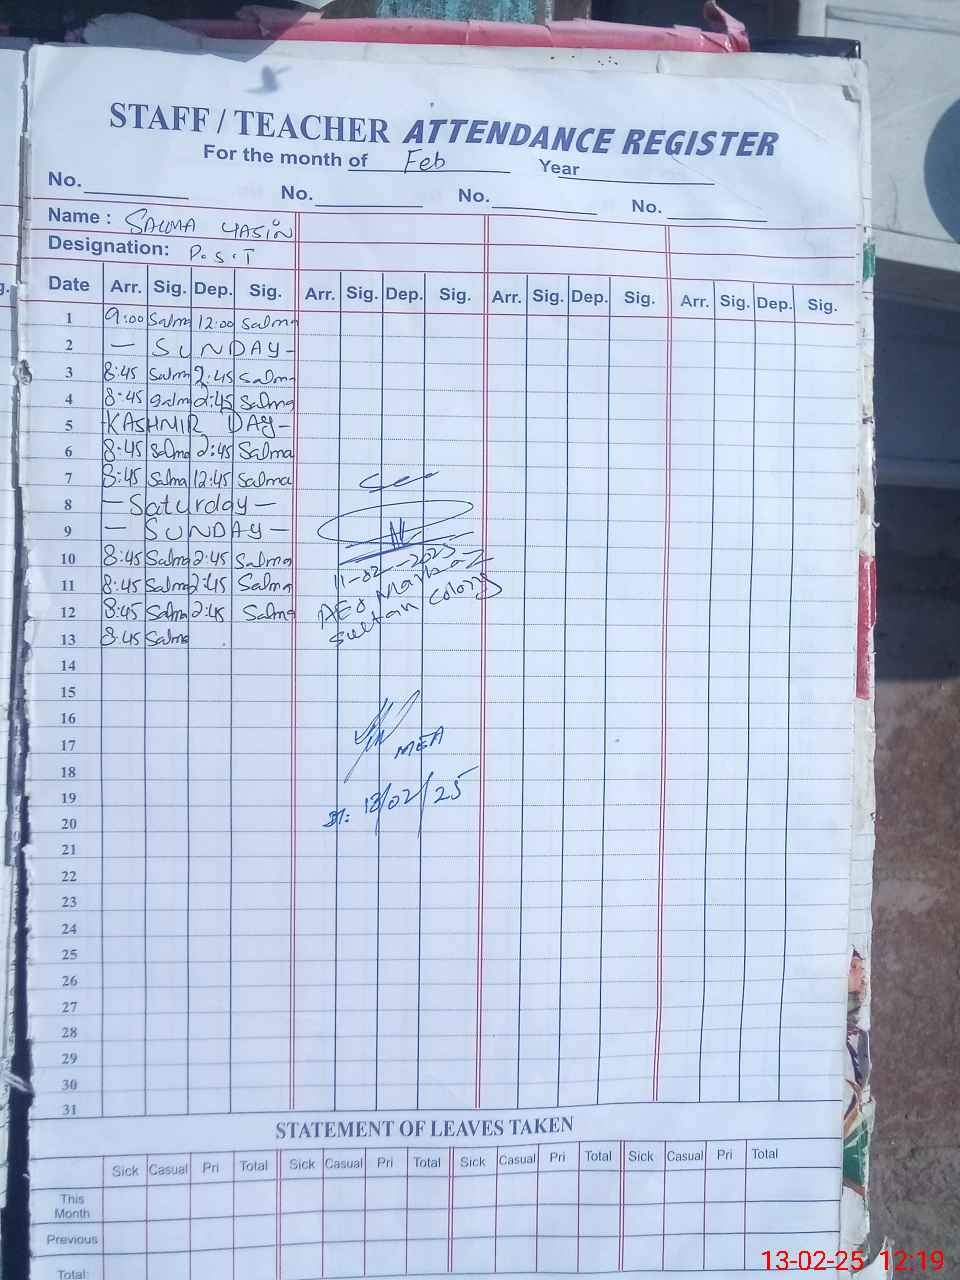 STAFF / TEACHER ATTENDANCE REGISTER
For the month of Feb Year
No. No. No. No.
Name : SALMA YASIN
Designation: P.S.T
Date Arr. Sig. Dep. Sig. Arr. Sig. Dep. Sig. Arr. Sig. Dep. Sig. Arr. Sig. Dep. Sig.
1 9:00 Salma 12:00 Salma
2 — SUNDAY —
3 8:45 Salma 2:45 Salma
4 8:45 Salma 2:45 Salma
5 -KASHMIR DAY-
6 8:45 Salma 2:45 Salma
7 8:45 Salma 12:45 Salma
8 — Saturday —
9 — SUNDAY —
10 8:45 Salma 2:45 Salma
11 8:45 Salma 2:45 Salma
12 8:45 Salma 2:45 Salma
13 8:45 Salma
14
15
16
17
18
19
20
21
22
23
24
25
26
27
28
29
30
31
11-02-2025
AEO Markaz
Sultan Colony
MEA
13/02/25
STATEMENT OF LEAVES TAKEN
Sick Casual Pri Total Sick Casual Pri Total Sick Casual Pri Total Sick Casual Pri Total
This
Month
Previous
Total:
13-02-25 12:19